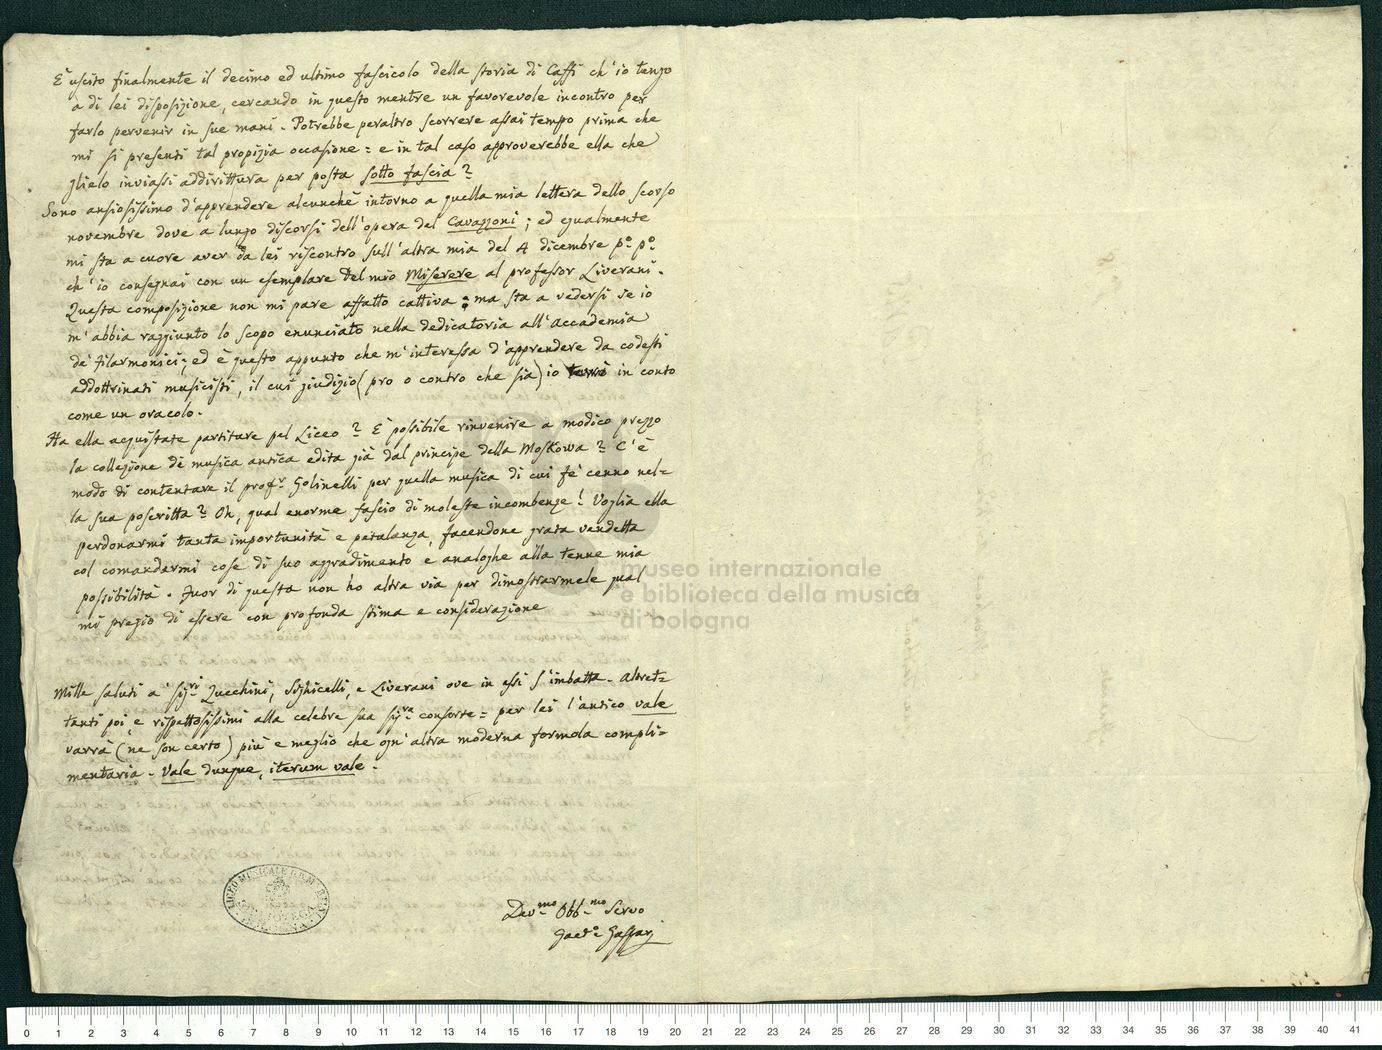 È uscito finalmente il decimo ed ultimo fascicolo della storia di Caffi ch'io tengo
a di lei disposizione, cercando in questo mentre un favorevole incontro per
farlo pervenir in sue mani. Potrebbe peraltro scorrere assai tempo prima che
mi si presenti tal propizia occasione = e in tal caso approverebbe ella che
glielo inviassi addirittura per posta sotto fascia?
Sono ansiosissimo d'apprendere alcunchè intorno a quella mia lettera dello scorso
novembre dove a lungo discorsi dell'opera del Cavazzoni; ed egualmente
mi sta a cuore aver da lei riscontro sull'altra mia del 4 dicembre p.º p.º
ch'io consegnai con un esemplare del mio Miserere al professor Liverani.
Questa composizione non mi pare affatto cattiva; ma sta a vedersi se io
m'abbia raggiunto lo scopo enunciato nella dedicatoria all'Accademia
de' Filarmonici; ed è questo appunto che m'interessa d'apprendere da codesti
addottrinati musicisti, il cui giudizio (pro o contro che sia) io in conto
come un oracolo.
Ha ella acquistate partiture pel Liceo? È possibile rinvenire a modico prezzo
la collezione de musica antica edita già dal principe della Moskowa? C'è
modo di contentare il prof.r Golinelli per quella musica di cui fe' cenno nel=
la sua poscritta? Oh, qual enorme fascio di moleste incombenze! Voglia ella
perdonarmi tanta importunità e petulanza, facendone grata vendetta
col comandarmi cose di suo aggradimento e analoghe alla tenue mia
possibilità. Fuor di questa non ho altra via per dimostrarmele qual
mi pregio di essere con profonda stima e considerazione
Mille saluti a' sig.ri Zucchini, Sighicelli, e Liverani ove in essi s'imbatta. Altret=
tanti poi, e rispettosissimi alla celebre sua sig.ra consorte = per lei l'antico vale
varrà (ne son certo) più e meglio che ogn'altra moderna formola compli=
mentaria. Vale dunque, iterum vale.
Dev.mo Obb.mo Servo
Gaet.º Gaspari
LICEO MUSICALE
BIBLIOTECA
museo internazionale
e biblioteca della musica
di bologna
0 1 2 3 4 5 6 7 8 9 10 11 12 13 14 15 16 17 18 19 20 21 22 23 24 25 26 27 28 29 30 31 32 33 34 35 36 37 38 39 40 41